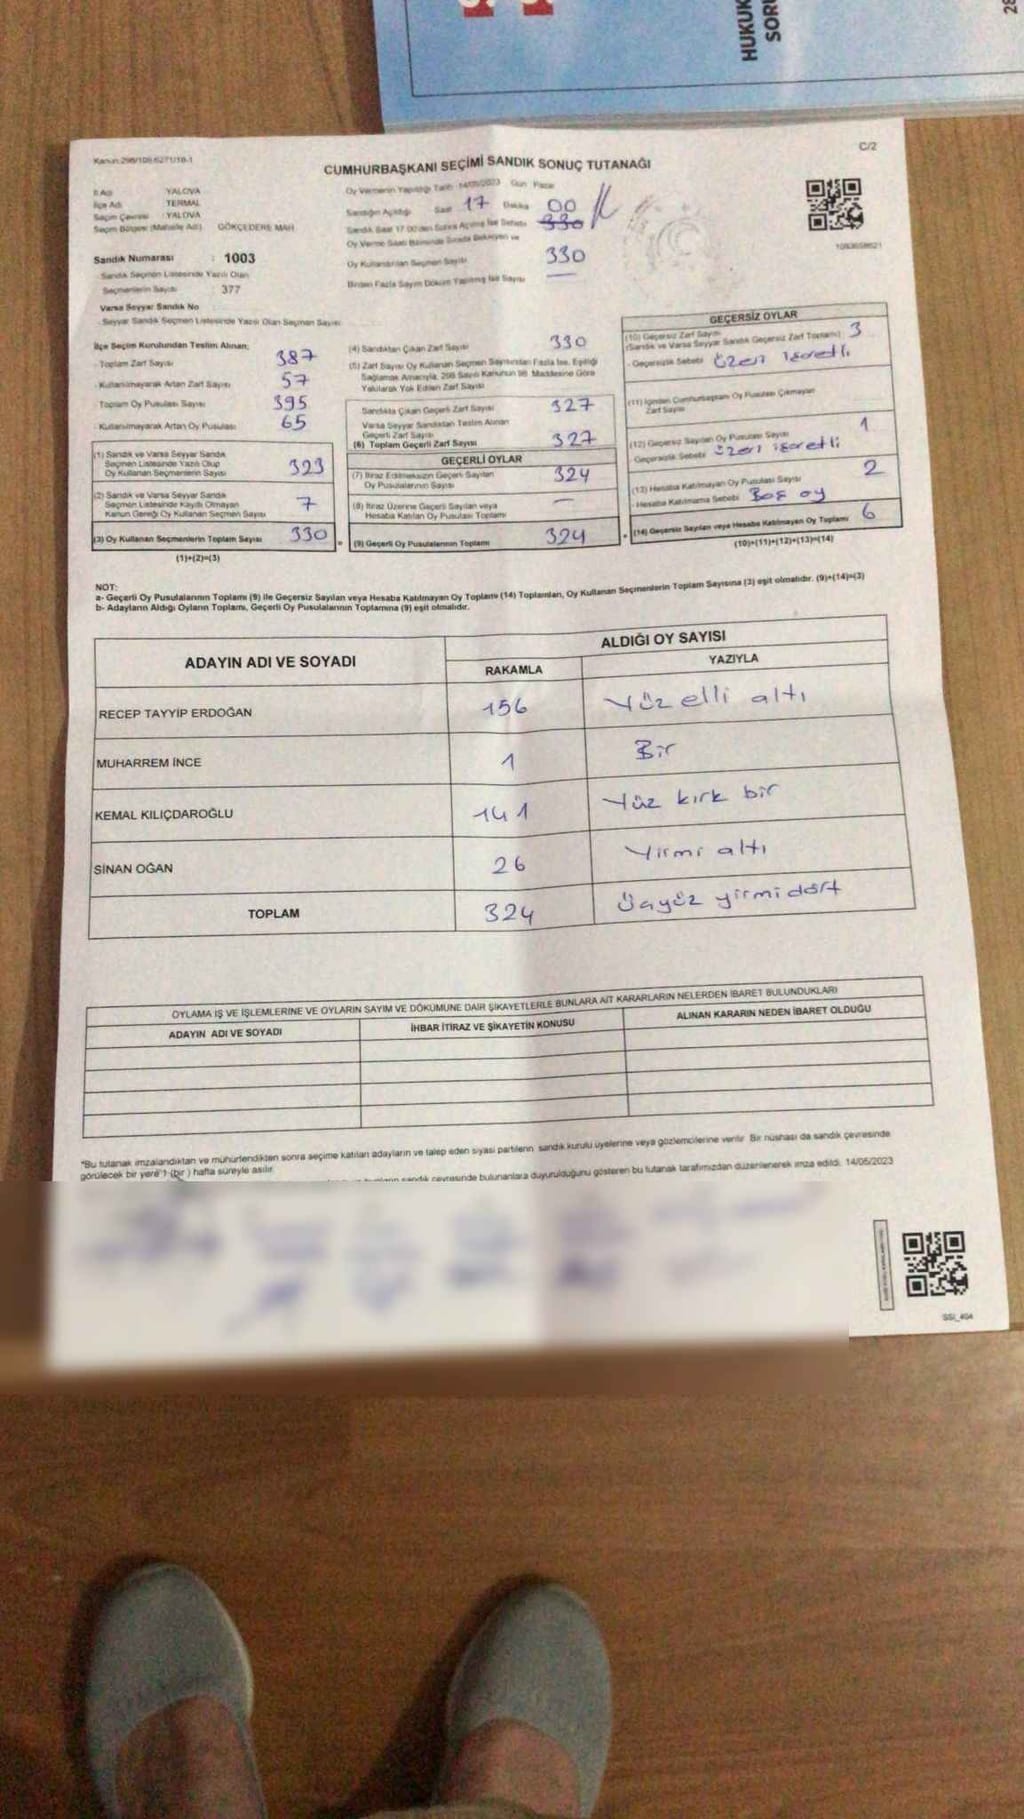 HUKUK
SORU
28
Kanun:298/106-6271/18-1
C/2
CUMHURBAŞKANI SEÇİMİ SANDIK SONUÇ TUTANAĞI
İl Adı YALOVA
İlçe Adı TERMAL
Seçim Çevresi YALOVA
Seçim Bölgesi (Mahalle Adı) GÖKÇEDERE MAH
Oy Vermenin Yapıldığı Tarih 14/05/2023 Gün Pazar
Sandığın Açıldığı Saat 17 Dakika 00
Sandık Saat 17.00'den Sonra Açılmış İse Sebebi 330
Oy Verme Saati Bitiminde Sırada Bekleyen ve
Oy Kullandırılan Seçmen Sayısı 330
Birden Fazla Sayım Döküm Yapılmış İse Sayısı —
Sandık Numarası : 1003
Sandık Seçmen Listesinde Yazılı Olan
Seçmenlerin Sayısı : 377
Varsa Seyyar Sandık No
Seyyar Sandık Seçmen Listesinde Yazılı Olan Seçmen Sayısı
İlçe Seçim Kurulundan Teslim Alınan;
Toplam Zarf Sayısı 387
Kullanılmayarak Artan Zarf Sayısı 57
Toplam Oy Pusulası Sayısı 395
Kullanılmayarak Artan Oy Pusulası 65
(1) Sandık ve Varsa Seyyar Sandık
Seçmen Listesinde Yazılı Olup
Oy Kullanan Seçmenlerin Sayısı 323
(2) Sandık ve Varsa Seyyar Sandık
Seçmen Listesinde Kayıtlı Olmayan
Kanun Gereği Oy Kullanan Seçmen Sayısı 7
(3) Oy Kullanan Seçmenlerin Toplam Sayısı 330
(1)+(2)=(3)
(4) Sandıktan Çıkan Zarf Sayısı 330
(5) Zarf Sayısı Oy Kullanan Seçmen Sayısından Fazla İse, Eşitliği
Sağlamak Amacıyla, 298 Sayılı Kanunun 98. Maddesine Göre
Yakılarak Yok Edilen Zarf Sayısı
Sandıkta Çıkan Geçerli Zarf Sayısı 327
Varsa Seyyar Sandıktan Teslim Alınan
Geçerli Zarf Sayısı
(6) Toplam Geçerli Zarf Sayısı 327
GEÇERLİ OYLAR
(7) İtiraz Edilmeksizin Geçerli Sayılan
Oy Pusulalarının Sayısı 324
(8) İtiraz Üzerine Geçerli Sayılan veya
Hesaba Katılan Oy Pusulası Toplamı —
(9) Geçerli Oy Pusulalarının Toplamı 324
GEÇERSİZ OYLAR
(10) Geçersiz Zarf Sayısı 3
(Sandık ve Varsa Seyyar Sandık Geçersiz Zarf Toplamı)
Geçersizlik Sebebi üzeri işaretli
(11) İçinden Cumhurbaşkanı Oy Pusulası Çıkmayan
Zarf Sayısı
(12) Geçersiz Sayılan Oy Pusulası Sayısı 1
Geçersizlik Sebebi üzeri işaretli
(13) Hesaba Katılmayan Oy Pusulası Sayısı 2
Hesaba Katılmama Sebebi Boş oy
(14) Geçersiz Sayılan veya Hesaba Katılmayan Oy Toplamı 6
(10)+(11)+(12)+(13)=(14)
NOT:
a- Geçerli Oy Pusulalarının Toplamı (9) ile Geçersiz Sayılan veya Hesaba Katılmayan Oy Toplamı (14) Toplamları, Oy Kullanan Seçmenlerin Toplam Sayısına (3) eşit olmalıdır. (9)+(14)=(3)
b- Adayların Aldığı Oyların Toplamı, Geçerli Oy Pusulalarının Toplamına (9) eşit olmalıdır.
ADAYIN ADI VE SOYADI
ALDIĞI OY SAYISI
RAKAMLA YAZIYLA
RECEP TAYYİP ERDOĞAN 156 Yüz elli altı
MUHARREM İNCE 1 Bir
KEMAL KILIÇDAROĞLU 141 Yüz kırk bir
SİNAN OĞAN 26 Yirmi altı
TOPLAM 324 Üçyüz yirmi dört
OYLAMA İŞ VE İŞLEMLERİNE VE OYLARIN SAYIM VE DÖKÜMÜNE DAİR ŞİKAYETLERLE BUNLARA AİT KARARLARIN NELERDEN İBARET BULUNDUKLARI
ADAYIN ADI VE SOYADI İHBAR İTİRAZ VE ŞİKAYETİN KONUSU ALINAN KARARIN NEDEN İBARET OLDUĞU
*Bu tutanak imzalandıktan ve mühürlendikten sonra seçime katılan adayların ve talep eden siyasi partilerin sandık kurulu üyelerine veya gözlemcilerine verilir. Bir nüshası da sandık çevresinde
görülecek bir yere 1 (bir) hafta süreyle asılır.
sandık çevresinde bulunanlara duyurulduğunu gösteren bu tutanak tarafımızdan düzenlenerek imza edildi. 14/05/2023
SSİ_404